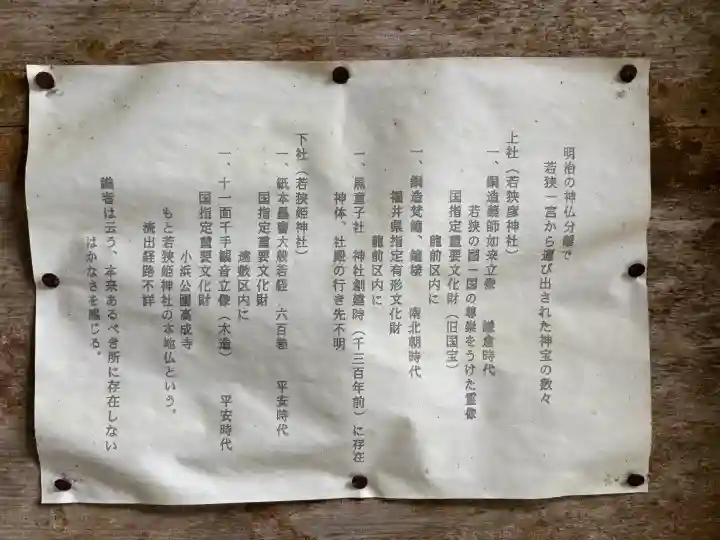 明治の神仏分離で
若狭一宮から運び出された神宝の数々
上社（若狭彦神社）
一、銅造薬師如来立像　鎌倉時代
若狭の国一国の尊崇をうけた霊像
国指定重要文化財（旧国宝）
龍前区内に
一、銅造梵鐘、鐘楼　南北朝時代
福井県指定有形文化財
龍前区内に
一、黒童子社　神社創建時（千三百年前）に存在
神体、社殿の行き先不明
下社（若狭姫神社）
一、紙本墨書大般若経　六百巻　平安時代
国指定重要文化財
遠敷区内に
一、十一面千手観音立像（木造）　平安時代
国指定重要文化財
小浜公園高成寺
もと若狭姫神社の本地仏という。
流出経路不詳
識者は云う、本来あるべき所に存在しない
はかなさを感じる。